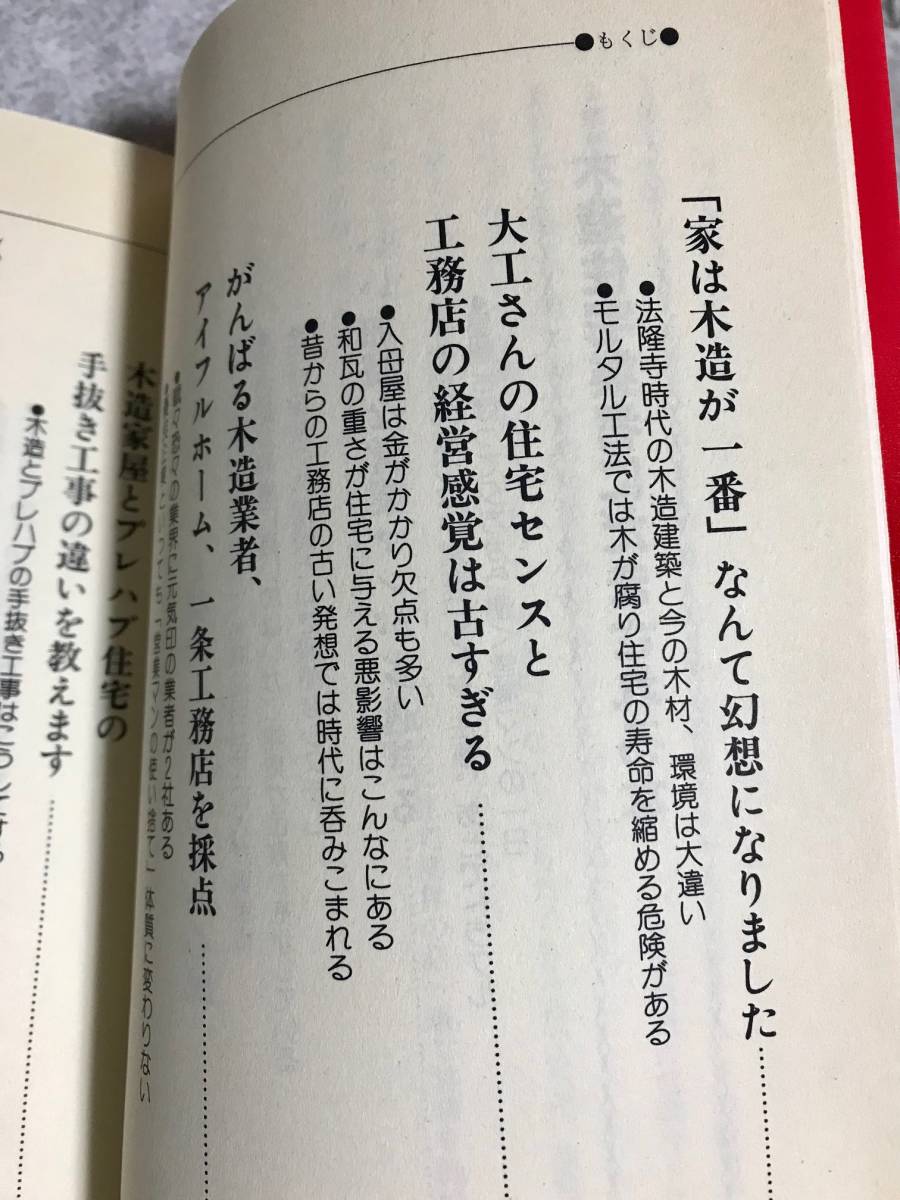 ●もくじ●
「家は木造が一番」なんて幻想になりました
●法隆寺時代の木造建築と今の木材、環境は大違い
●モルタル工法では木が腐り住宅の寿命を縮める危険がある
大工さんの住宅センスと
工務店の経営感覚は古すぎる
●入母屋は金がかかり欠点も多い
●和瓦の重さが住宅に与える悪影響はこんなにある
●昔からの工務店の古い発想では時代に呑みこまれる
がんばる木造業者、
アイフルホーム、一条工務店を採点
の業界に元気印の業者が2社ある
といっても「営業マンの使い捨て」体質に変わりない
木造家屋とプレハブ住宅の
手抜き工事の違いを教えます
●木造とプレハブの手抜き工事はこうして